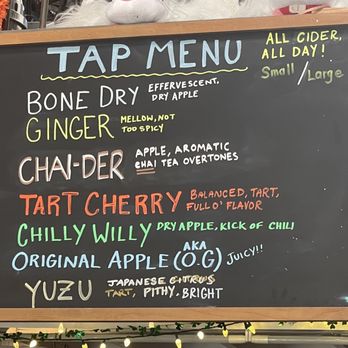 TAP MENU
ALL CIDER,
ALL DAY!
Small/Large
BONE DRY EFFERVESCENT,
DRY APPLE
GINGER MELLOW, NOT
TOO SPICY
CHAI-DER APPLE, AROMATIC
CHAI TEA OVERTONES
TART CHERRY BALANCED, TART,
FULL O' FLAVOR
CHILLY WILLY DRY APPLE, KICK OF CHILI
AKA
ORIGINAL APPLE (O.G) JUICY!!
YUZU JAPANESE CITRUS
TART, PITHY, BRIGHT